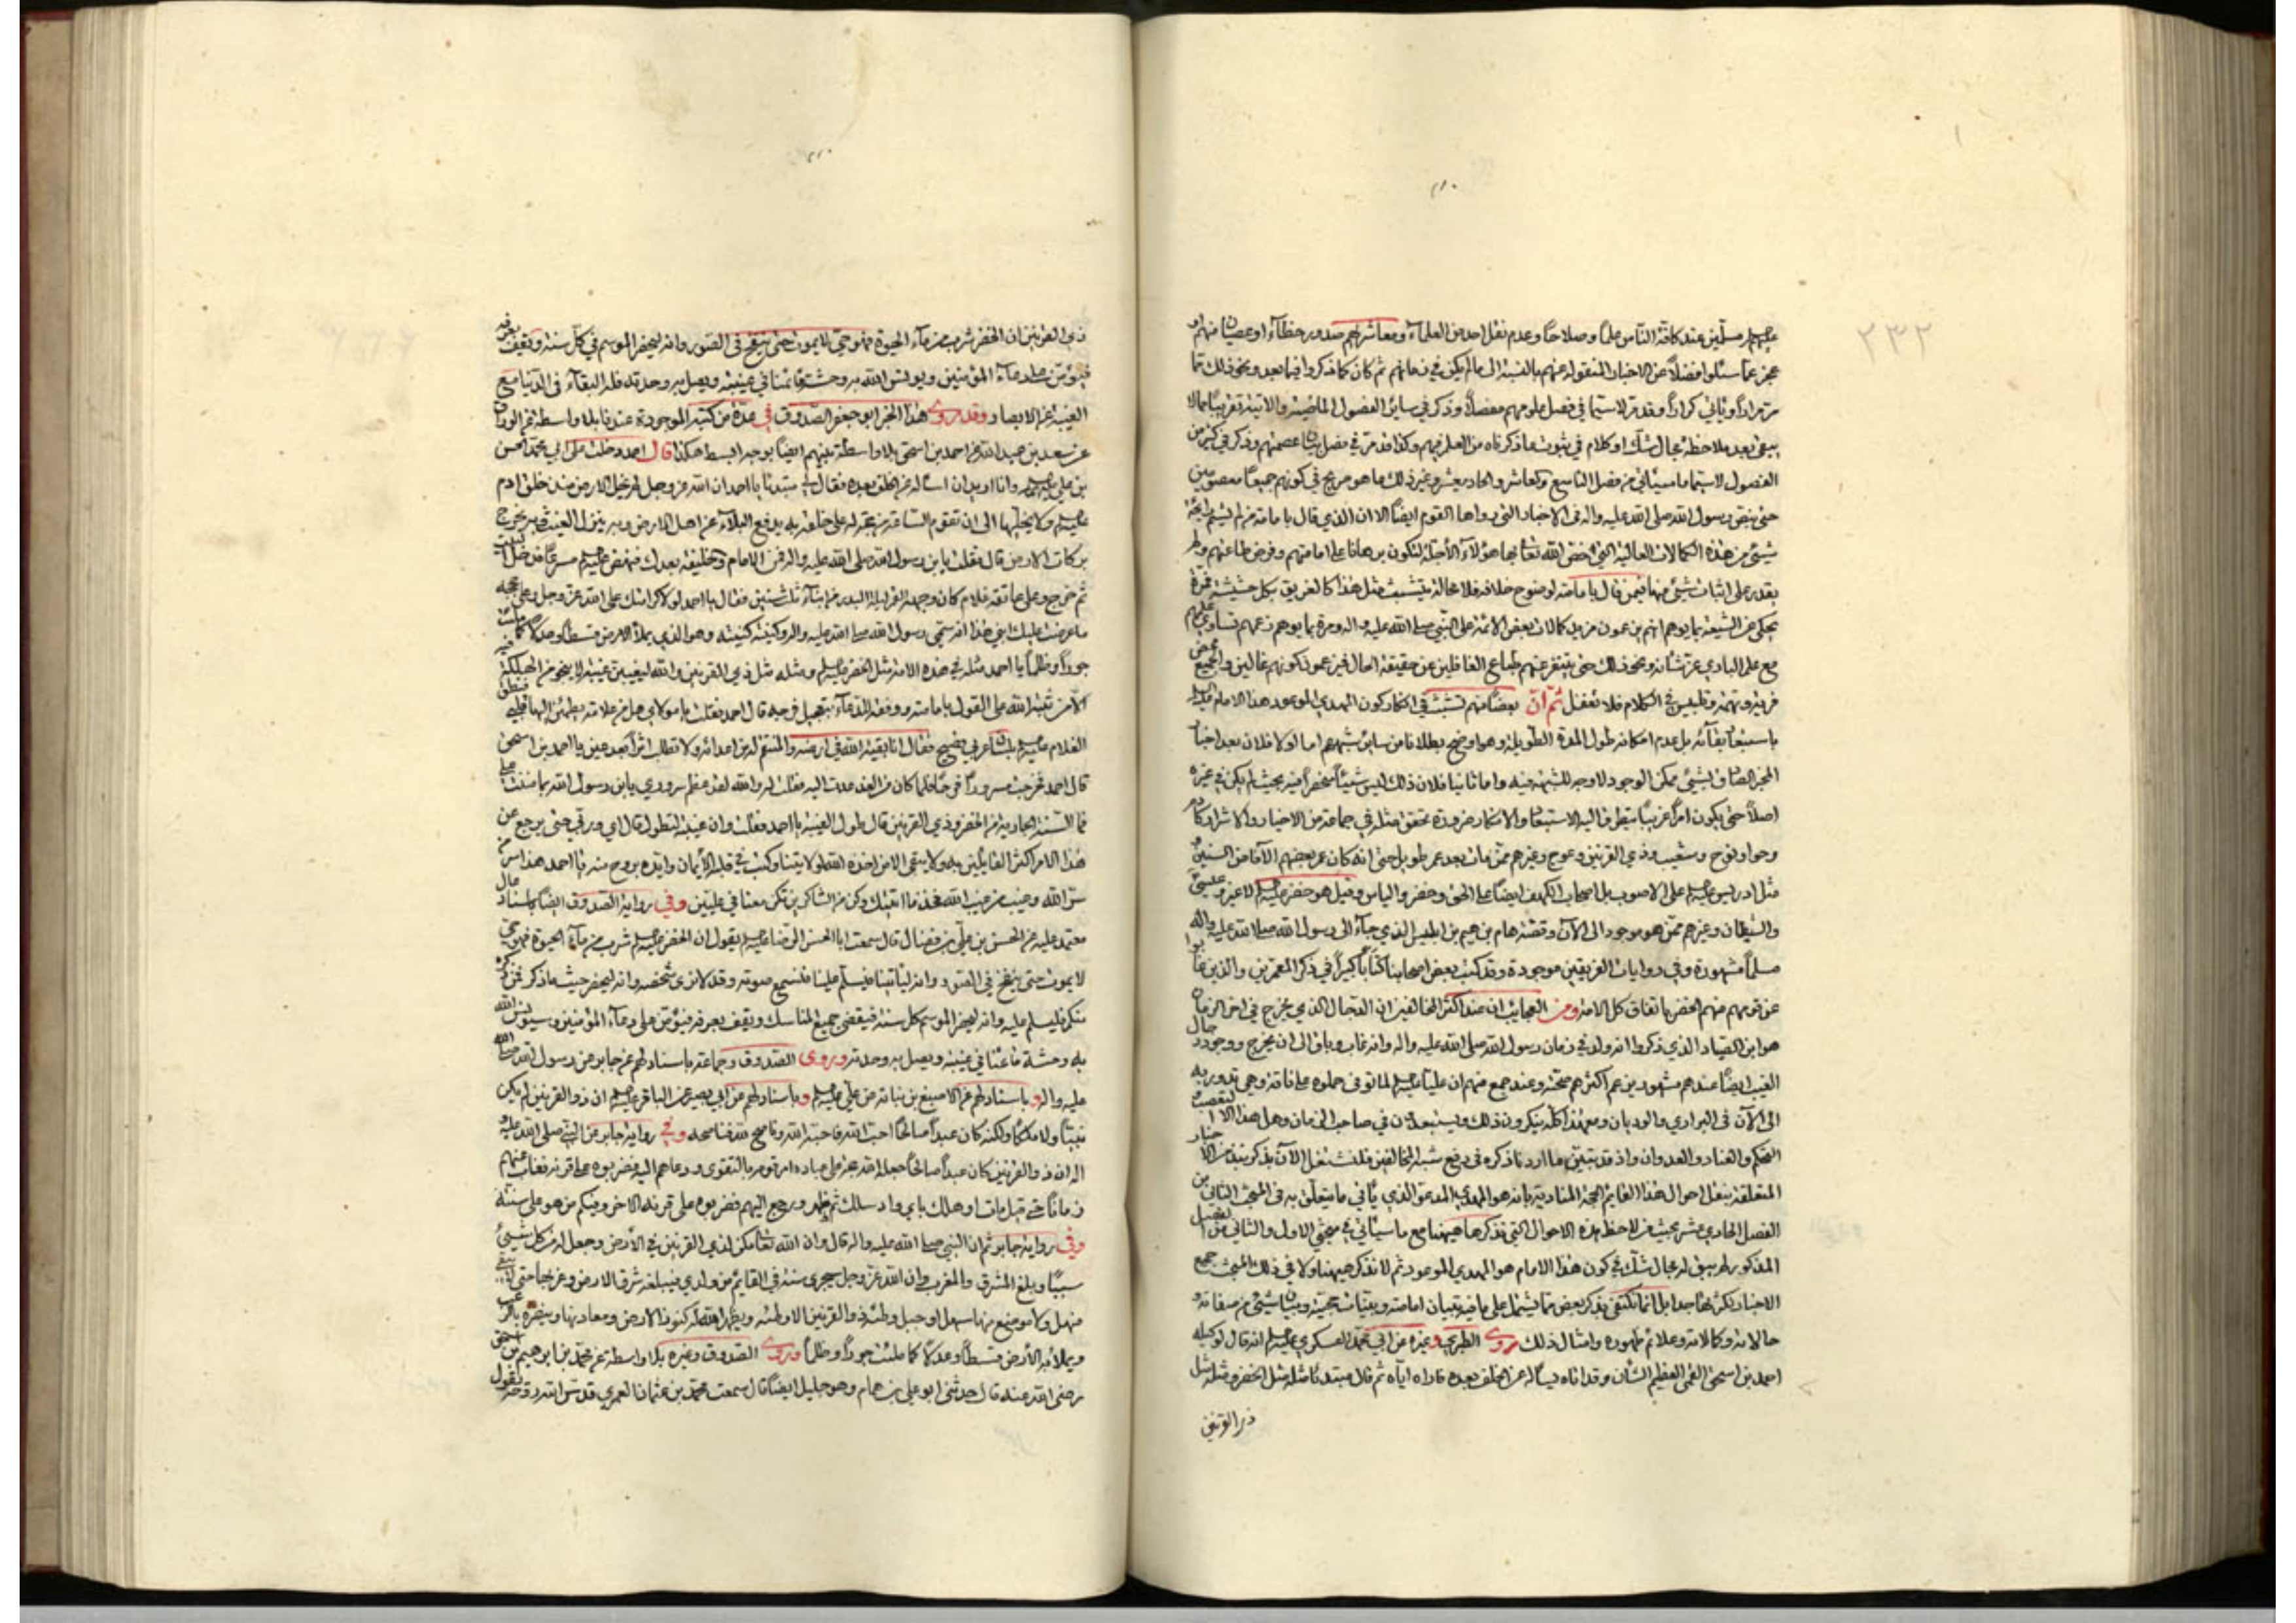 ٢٣٢
عليهم مسلّمين عند كافة الناس علما وصلاحا وعدم نقل احد من العلماء ومعاشريهم صدور خطاء او عصيان منهم او
عجز عما سئلوا فضلا عن الاخبار المنقولة عنهم بالنسبة الى ما لم يكن في زمانهم ثم كان كما ذكروا فيما بعد ونحو ذلك مما
مر مرارا ويأتي كرارا وقد مر لاسيما في فصل علومهم مفصلا وذكر في ساير الفصول الماضية والاتية تقريبا
يبقى بعد ملاحظته مجال شك او كلام في ثبوت ما ذكرناه من العلم فيهم وكذا قد مر في فصل بيان عصمتهم وذكر في كثير من
الفصول لاسيما ما سيأتي من فصل التاسع والعاشر والحاديعشر وغير ذلك ما هو صريح في كونهم جميعا معصومين
حتى بنص رسول الله صلى الله عليه واله في الاخبار التي رواها القوم ايضا الا ان الذي قال بامامة من لم يشم رايحة
شيئ من هذه الكمالات العالية التي اختص الله تعالى بها هؤلاء الأجلة لتكون برهانا على امامتهم وفرض طاعتهم ولم
يقدر على اثبات شيئ منها فيمن قال بامامته لوضوح خلافه فلا محالة يتشبث مثل هذا كالغريق بكل حشيشة فمرة
يحكى عن الشيعة بما يوهم انهم يزعمون مزيد كمالات بعض الائمة على النبي صلى الله عليه واله ومرة بما يوهم زعمهم تساوي علمهم
مع علم الباري عز شأنه ونحو ذلك حتى يتنفر عنهم طباع الغافلين عن حقيقة الحال فيزعمون كونهم غالين والجميع محض
فرية وتهمة وتلبيس في الكلام فلا تغفل ثم ان بعضا منهم تشبث في انكار كون المهدي الموعود هذا الامام عليه السلام
باستبعاد بقائه بل عدم امكانه طول المدة الطويلة وهو اوضح بطلانا من ساير شبههم اما اولا فلان بعد اخبار
المخبر الصادق بشيئ ممكن الوجود لا وجه للشبهة فيه واما ثانيا فلان ذلك ليس شيئا منحصرا فيه بحيث لم يكن في غيره
اصلا حتى يكون امرا غريبا يتطرق اليه الاستبعاد والانكار ضرورة تحقق مثله في جماعة من الاخيار والاشرار كادم
وحوا ونوح وشعيب وذي القرنين وعوج وغيرهم ممن مات بعد عمر طويل حتى انه كان عمر بعضهم الآفا من السنين
مثل ادريس على الاصوب بل اصحاب الكهف ايضا على الحق وخضر والياس وقيل هو خضر لا غير وعيسى
والشيطان وغيرهم ممن هو موجود الى الآن وقصة هام بن هيم بن ابليس الذي جاء الى رسول الله صلى الله عليه واله
مسلما مشهورة وفي روايات الفريقين موجودة وقد كتب بعض اصحابنا كتابا كبيرا في ذكر المعمرين والذين غابوا
عن قومهم منهم الخضر باتفاق كل الامة ومن العجايب ان عند اكثر المخالفين ان الدجال الذي يخرج في اخر الزمان
هو ابن الصياد الذي ذكروا انه ولد في زمان رسول الله صلى الله عليه واله وانه غاب وباق الى ان يخرج ووجود رجال
الغيب ايضا عندهم مشهور يزعم اكثرهم صحته وعند جمع منهم ان عليا لما توفى حملوه على ناقة وهي تدور به
الى الآن في البراري والوديان ومع هذا كله ينكرون ذلك ويستبعدون في صاحب الزمان وهل هذا الا التعصب
التحكم والعناد والعدوان واذ قد تبين ما اردنا ذكره في دفع شبه المخالفين فلنشتغل الآن بذكر نبذ من الاخبار
المتعلقة بنقل احوال هذا القايم الحجة المنادية بانه هو المهدي المدعو الذي يأتي ما يتعلق به في المبحث الثاني من
الفصل الحادي عشر بحيث من لاحظ هذه الاحوال التي نذكرها هيهنا مع ما سيأتي في مبحثي الاول والثاني من الفصل
المذكور لم يبق له مجال شك في كون هذا الامام هو المهدي الموعود ثم لا نذكر هيهنا ولا في ذلك المبحث جميع
الاخبار لكثرتها جدا بل انما نكتفي بذكر بعض مما يشتمل على ما فيه تبيان امامته وبيان شيئ من صفاته و
حالاته وكمالاته وعلائم ظهوره وامثال ذلك روى الطبرسي وغيره عن ابي محمد العسكري انه قال لوكيله
احمد بن اسحق القمي العظيم الشأن وقد اتاه يسأله عن الخلف بعده فاراه اياه ثم قال مبتدئا مثله مثل الخضر ومثله مثل
ذي القرنين
ذي القرنين ان الخضر شرب من ماء الحيوة فهو حي لا يموت حتى ينفخ في الصور وانه ليحضر الموسم في كل سنة ويقف بعرفة
فيؤمن على دعاء المؤمنين ويونس الله به وحشة قائمنا في غيبته ويصل به وحدته فله البقاء في الدنيا مع
الغيبة عن الابصار وقد روى هذا الخبر ابو جعفر الصدوق في عدة من كتبه الموجودة عندنا بلا واسطة عن الوراق
عن سعد بن عبد الله عن احمد بن اسحق بلا واسطة بينهم ايضا بوجه ابسط هكذا قال احمد دخلت على ابي محمد الحسن
بن علي وانا اريد ان اسأله عن الخلف بعده فقال لي مبتدئا يا احمد ان الله عز وجل لم يخل الارض منذ خلق ادم
ولا يخليها الى ان تقوم الساعة من حجة له على خلقه به يدفع البلاء عن اهل الارض وبه ينزل الغيث وبه يخرج
بركات الارض قال فقلت يابن رسول الله صلى الله عليه واله فمن الامام والخليفة بعدك فنهض مسرعا فدخل البيت
ثم خرج وعلى عاتقه غلام كان وجهه القمر ليلة البدر من ابناء ثلث سنين فقال يا احمد لولا كرامتك على الله عز وجل وعلى حججه
ما عرضت عليك ابني هذا انه سمي رسول الله صلى الله عليه واله وكنيته كنيته وهو الذي يملأ الارض قسطا وعدلا كما ملئت
جورا وظلما يا احمد مثله في هذه الامة مثل الخضر ومثله مثل ذي القرنين والله ليغيبن غيبة لا ينجو من الهلكة فيه
الا من ثبته الله على القول بامامته ووفقه للدعاء بتعجيل فرجه قال احمد فقلت يا مولاي هل من علامة يطمئن اليها قلبي فنطق
الغلام بلسان عربي فصيح فقال انا بقية الله في ارضه والمنتقم لدين اعدائه ولا تطلب اثرا بعد عين يا احمد بن اسحق
قال احمد فخرجت مسرورا فرحا فلما كان من الغد عدت اليه فقلت له والله لقد عظم سروري يابن رسول الله بما مننت علي
فما السنة الجارية من الخضر وذي القرنين قال طول الغيبة يا احمد فقلت وان غيبته لتطول قال اي وربي حتى يرجع عن
هذا الامر اكثر القايلين به ولا يبقى الا من اخذ الله ولايتنا وكتب في قلبه الايمان وايده بروح منه يا احمد هذا سر من
سر الله وغيب من غيب الله فخذ ما اتيتك وكن من الشاكرين تكن معنا في عليين وفي رواية الصدوق ايضا باسناد
معتمد عليه عن الحسن بن علي بن فضال قال سمعت ابا الحسن الرضا يقول ان الخضر شرب من ماء الحيوة فهو حي
لا يموت حتى ينفخ في الصور وانه ليأتينا فيسلم علينا فنسمع صوته وقد لا نرى شخصه وانه ليحضر حيث ما ذكر فمن ذكره
منكم فليسلم عليه وانه ليحضر الموسم كل سنة فيقضي جميع المناسك ويقف بعرفة فيؤمن على دعاء المؤمنين وسيونس الله
به وحشة قائمنا في غيبته ويصل به وحدته وروى الصدوق وجماعة باسنادهم عن جابر عن رسول الله صلى الله
عليه واله وباسنادهم عن الاصبغ بن نباتة عن علي وباسنادهم عن ابي بصير عن الباقر ان ذو القرنين لم يكن
نبيا ولا ملكا ولكنه كان عبدا صالحا احب الله فاحبه الله وناصح لله فناصحه وفي رواية جابر عن النبي صلى الله عليه و
اله ان ذو القرنين كان عبدا صالحا جعله الله حجة على عباده امر قومه بالتقوى ودعاهم اليه فضربوه على قرنه فغاب عنهم
زمانا حتى قيل مات او هلك باي واد سلك ثم ظهر ورجع اليهم فضربوه على قرنه الاخر وفيكم من هو على سنته
وفي رواية جابر ثم ان النبي صلى الله عليه واله قال وان الله تعالى مكن لذي القرنين في الأرض وجعل له من كل شيئ
سببا وبلغ المشرق والمغرب وان الله عز وجل سيجري سنته في القايم من ولدي فيبلغه شرق الارض وغربها حتى لا يبقى
منهل ولا موضع منها سهل او جبل وطئه ذو القرنين الا وطئه ويظهر الله له كنوز الارض ومعادنها وينصره بالرعب
ويملأ به الأرض قسطا وعدلا كما ملئت جورا وظلما وروى الصدوق وغيره بلا واسطة عن محمد بن ابرهيم بن اسحق
رضي الله عنه قال حدثني ابو علي بن همام وهو جليل ايضا قال سمعت محمد بن عثمان العمري قدس الله روحه يقول